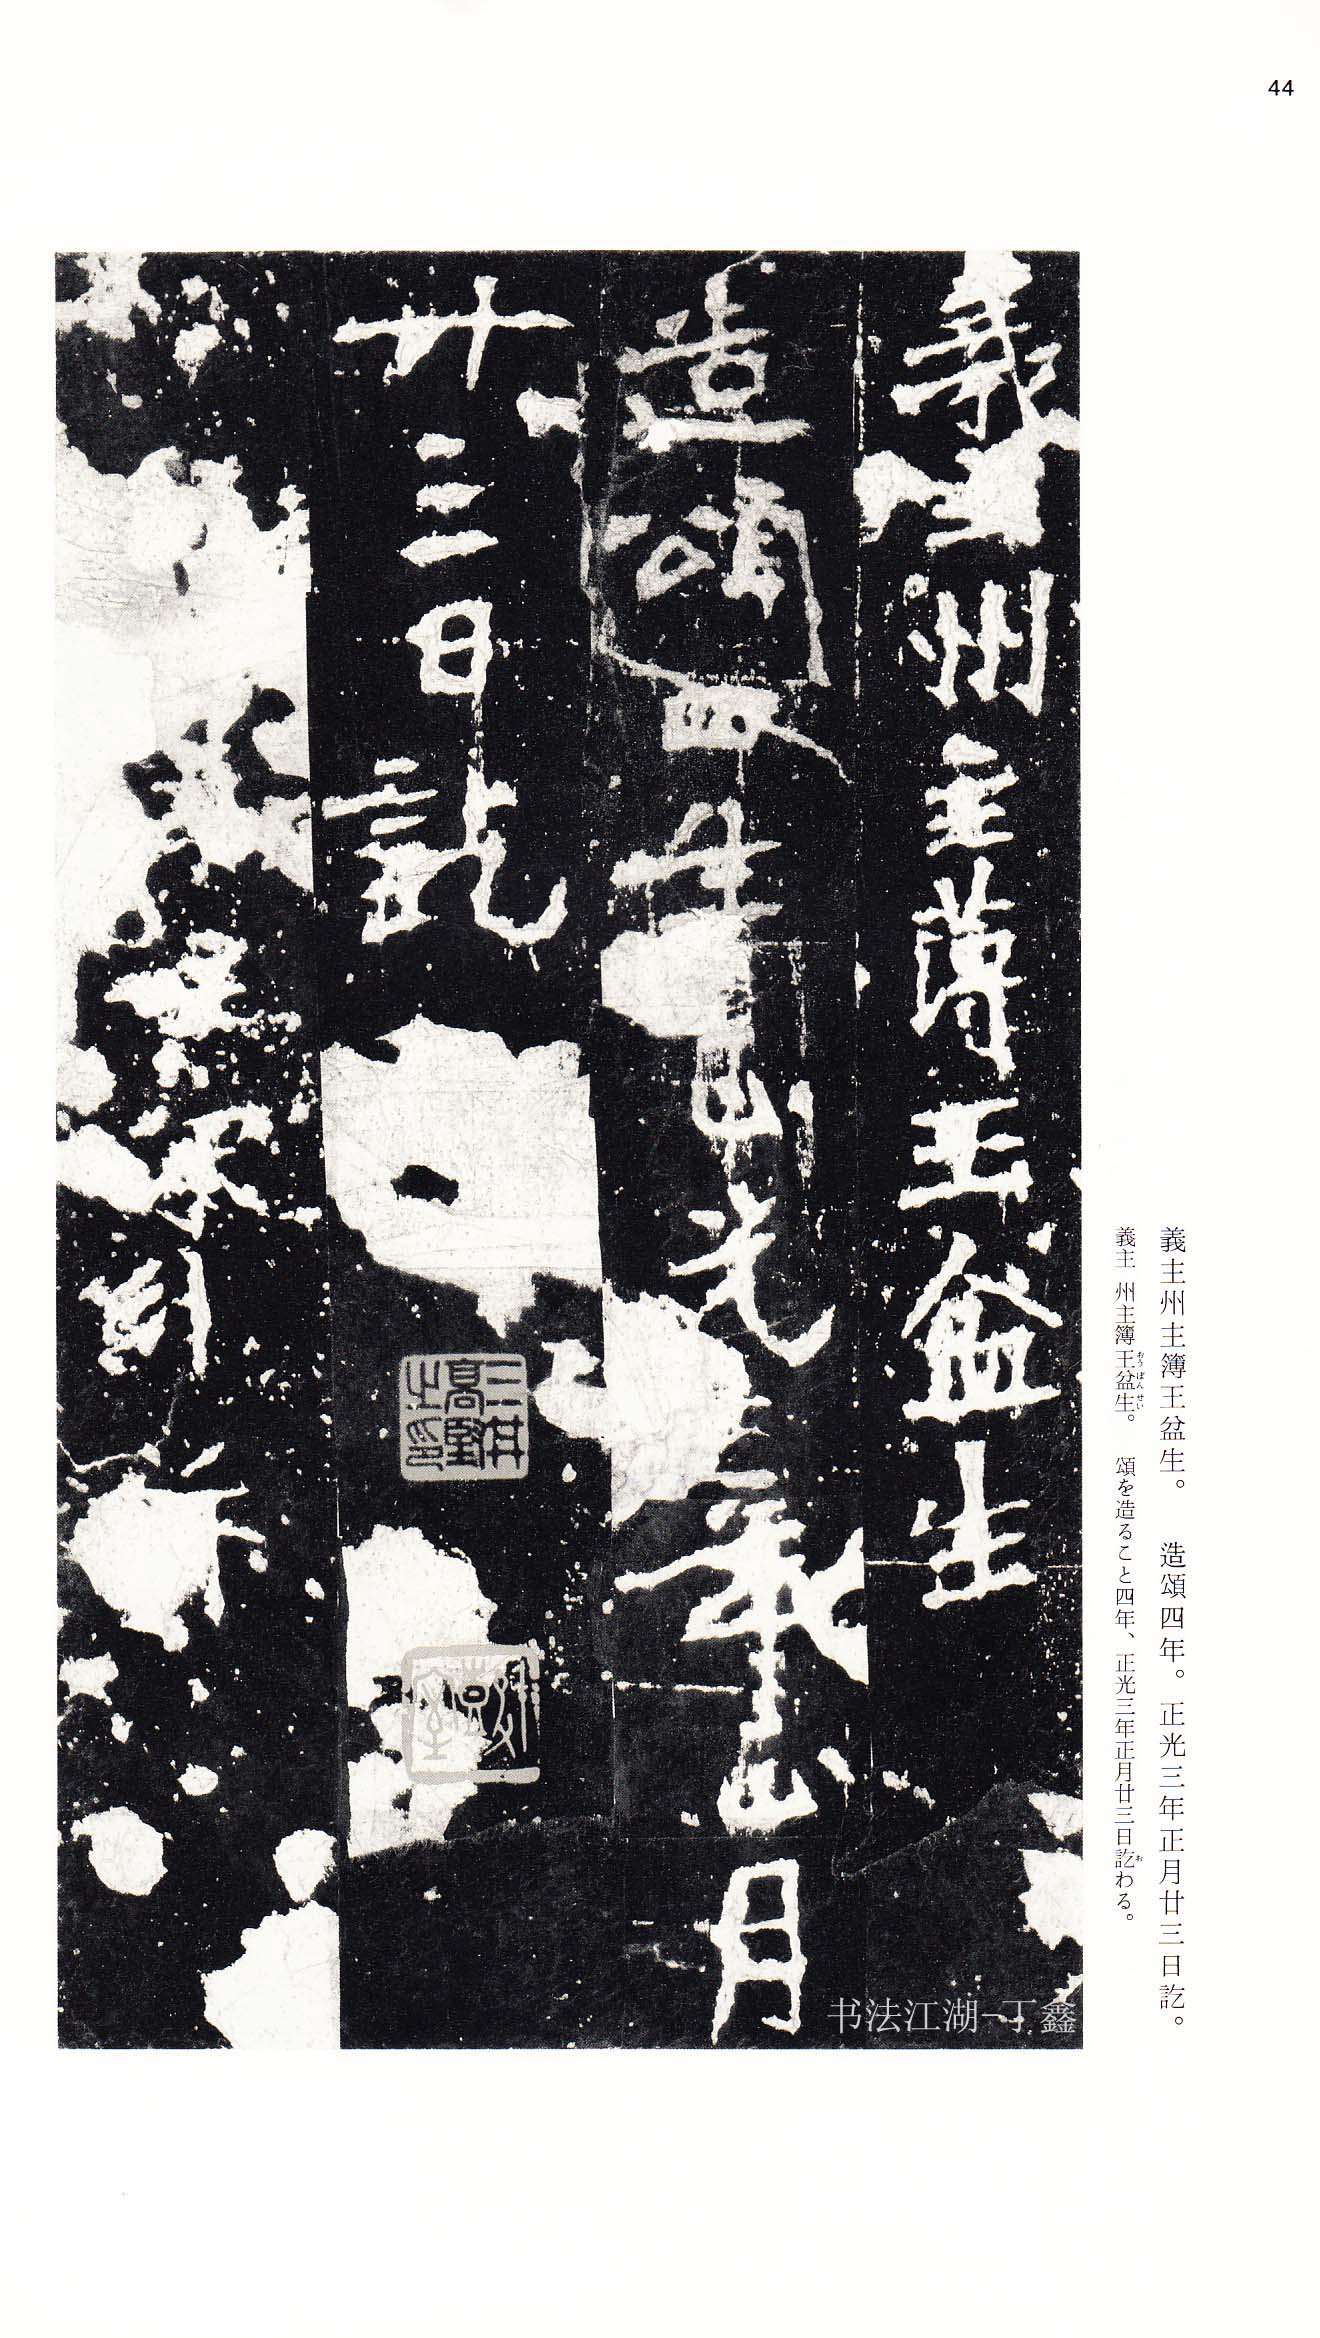 44
義主州主薄王盆生
造頌四年正光三年正月
廿三日訖
三井高堅之印
義主州主簿王盆生。 造頌四年。正光三年正月廿三日訖。
義主 州主簿王盆生。 頌を造ること四年、正光三年正月廿三日訖わる。
おうぼんせい
お
书法江湖-丁鑫